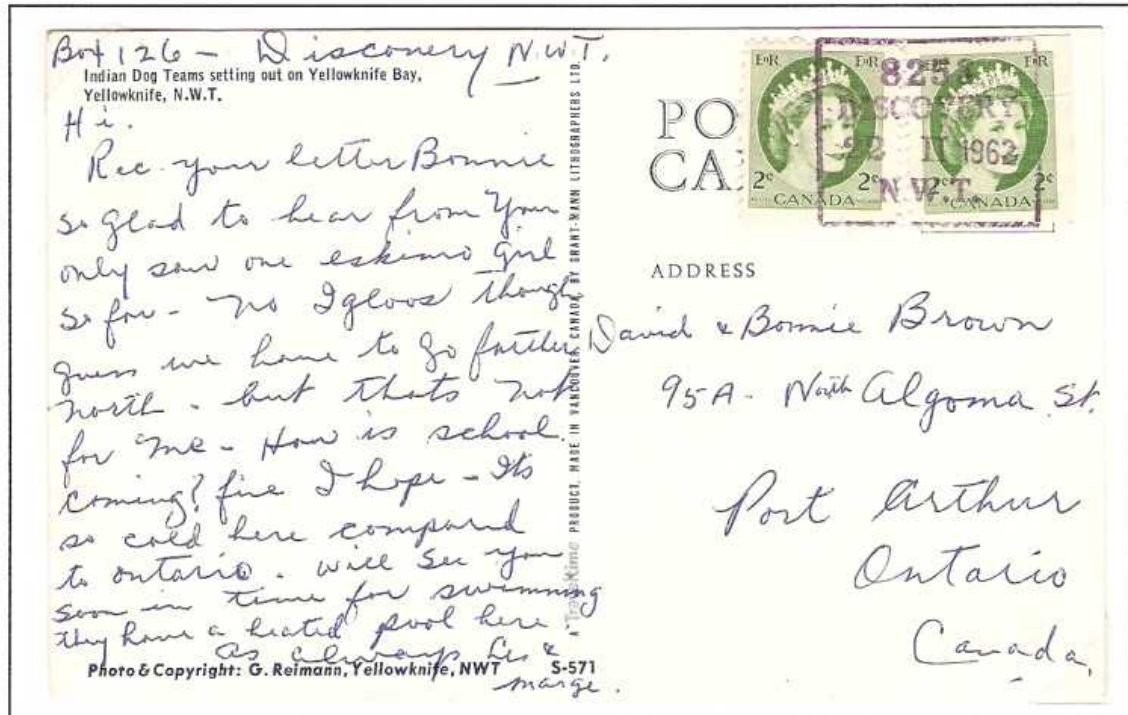 Box 126 - Discovery N.W.T.
Indian Dog Teams setting out on Yellowknife Bay,
Yellowknife, N.W.T.
Hi.
Rec. your letter Bonnie
so glad to hear from you
only saw one eskimo girl
so far - no Igloos though
guess we have to go farther
north - but thats not
for me - How is school
coming? fine I hope - Its
so cold here compared
to ontario. will see you
soon in time for swimming
they have a heated pool here.
as always Les &
marge.
Photo & Copyright: G. Reimann, Yellowknife, NWT S-571
A Traveltime PRODUCT. MADE IN VANCOUVER, CANADA, BY GRANT-MANN LITHOGRAPHERS LTD.
PO
CA
E R E R
2¢ 2¢
CANADA
E R E R
2¢ 2¢
CANADA
8253
DISCOVERY
22 II 1962
N.W.T.
ADDRESS
David & Bonnie Brown
95A - North Algoma St.
Port Arthur
Ontario
Canada,